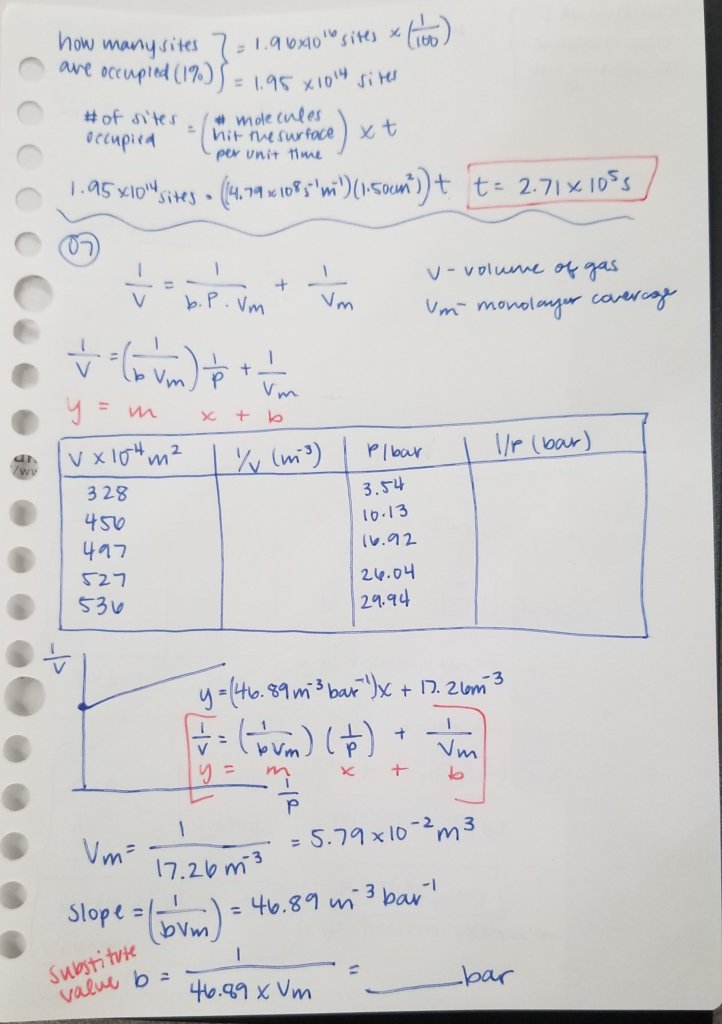 how many sites are occupied (1%) } = 1.96x10¹⁶ sites x (1/100)
= 1.95 x10¹⁴ sites
# of sites occupied = (# molecules hit the surface per unit time) x t
1.95x10¹⁴ sites = ((4.79x10⁸ s⁻¹ m⁻¹)(1.50cm²)) t t = 2.71 x 10⁵ s
07
1/V = 1/(b.P.Vm) + 1/Vm
V - volume of gas
Vm - monolayer coverage
1/V = (1/(b Vm)) 1/P + 1/Vm
y = m x + b
V x10⁻⁴ m² 1/V (m⁻³) P/bar 1/P (bar)
328 3.54
456 10.13
497 16.92
527 26.04
536 29.94
1/V
y = (46.89 m⁻³ bar⁻¹)x + 17.26m⁻³
1/V = (1/(bVm)) (1/P) + 1/Vm
y = m x + b
1/P
Vm = 1/(17.26 m⁻³) = 5.79x10⁻² m³
Slope = (1/(bVm)) = 46.89 m⁻³ bar⁻¹
substitute value b = 1/(46.89 x Vm) = ______ bar